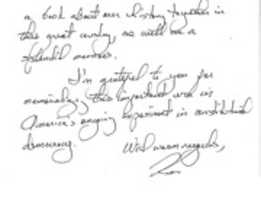 a book about our history together in
this great country, as well as a
splendid memoir.
I'm grateful to you for
memorializing this important work in
America's ongoing experiment in constitutional
democracy.
With warm regards,